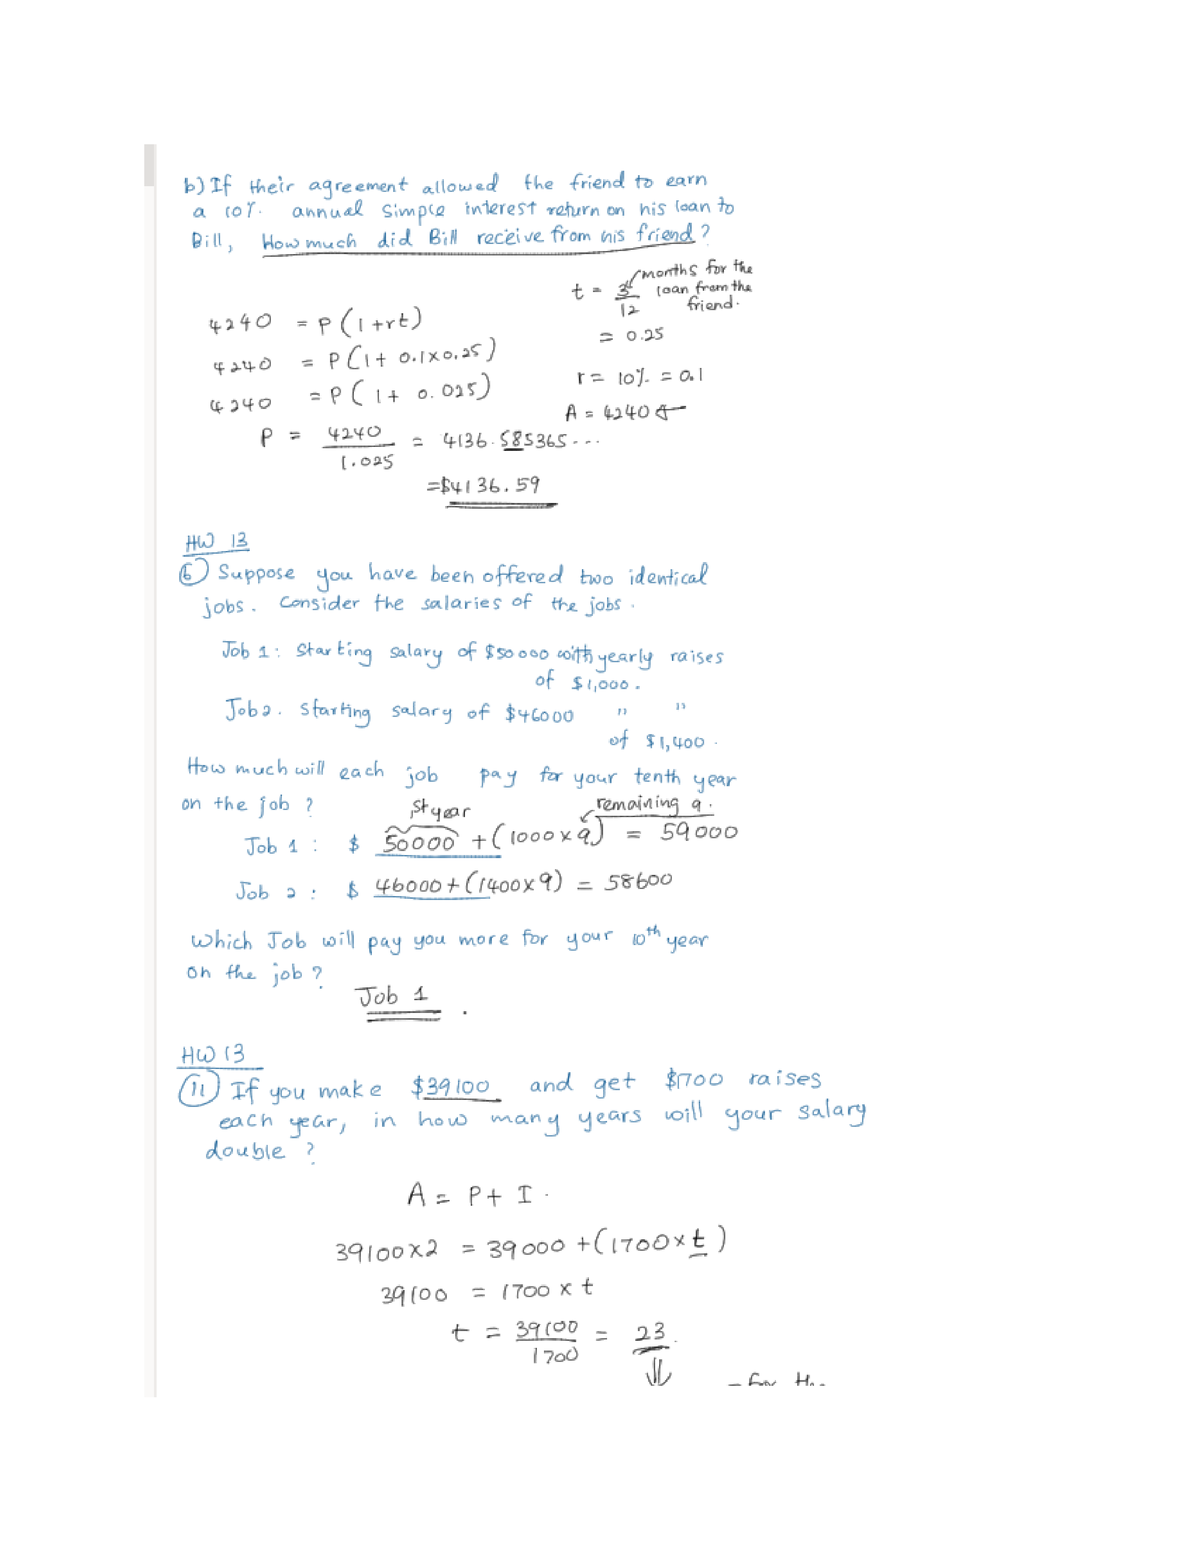 b) If their agreement allowed the friend to earn
a 10%. annual simple interest return on his loan to
Bill, How much did Bill receive from his friend?
t = 3/12 months for the loan from the friend.
= 0.25
4240 = P(1+rt)
4240 = P(1+ 0.1x0.25)
r = 10% = 0.1
4240 = P(1+ 0.025)
A = 4240
P = 4240/1.025 = 4136.585365...
=$4136.59
HW 13
6) Suppose you have been offered two identical
jobs. Consider the salaries of the jobs.
Job 1: Starting salary of $50000 with yearly raises
of $1,000.
Job 2. Starting salary of $46000 " "
of $1,400.
How much will each job pay for your tenth year
on the job?
1st year
remaining 9.
Job 1 : $ 50000 + (1000 x 9) = 59000
Job 2 : $ 46000 + (1400x9) = 58600
Which Job will pay you more for your 10th year
on the job?
Job 1
HW 13
11) If you make $39100 and get $1700 raises
each year, in how many years will your salary
double ?
A = P + I.
39100x2 = 39000 + (1700x t)
39100 = 1700 x t
t = 39100/1700 = 23.